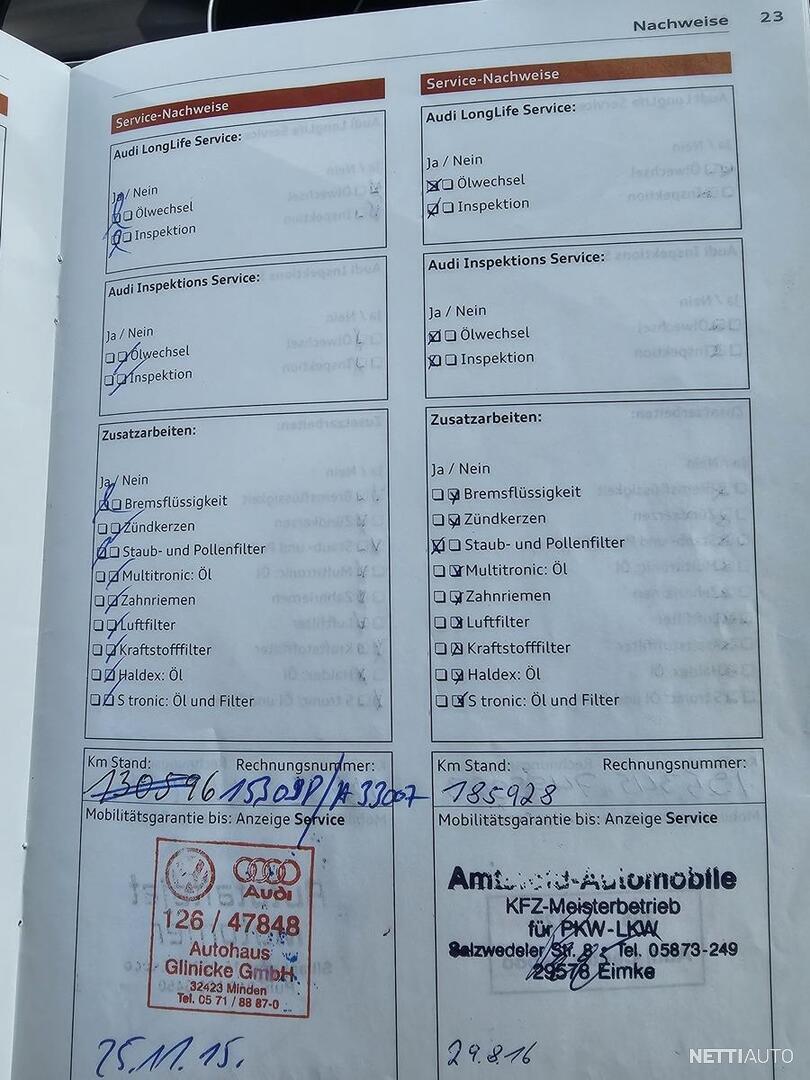 Nachweise 23
Service-Nachweise
Audi LongLife Service:
Ja / Nein
Ölwechsel
Inspektion
Audi Inspektions Service:
Ja / Nein
Ölwechsel
Inspektion
Zusatzarbeiten:
Ja / Nein
Bremsflüssigkeit
Zündkerzen
Staub- und Pollenfilter
Multitronic: Öl
Zahnriemen
Luftfilter
Kraftstofffilter
Haldex: Öl
S tronic: Öl und Filter
Km Stand: Rechnungsnummer:
Mobilitätsgarantie bis: Anzeige Service
Audi
126 / 47848
Autohaus
Glinicke GmbH
32423 Minden
Tel. 05 71 / 88 87-0
25.11.15.
Service-Nachweise
Audi LongLife Service:
Ja / Nein
Ölwechsel
Inspektion
Audi Inspektions Service:
Ja / Nein
Ölwechsel
Inspektion
Zusatzarbeiten:
Ja / Nein
Bremsflüssigkeit
Zündkerzen
Staub- und Pollenfilter
Multitronic: Öl
Zahnriemen
Luftfilter
Kraftstofffilter
Haldex: Öl
S tronic: Öl und Filter
Km Stand: Rechnungsnummer:
185928
Mobilitätsgarantie bis: Anzeige Service
KFZ-Meisterbetrieb
für PKW-LKW
Salzwedeler Str. 8 Tel. 05873-249
29578 Eimke
29.8.16
NETTIAUTO